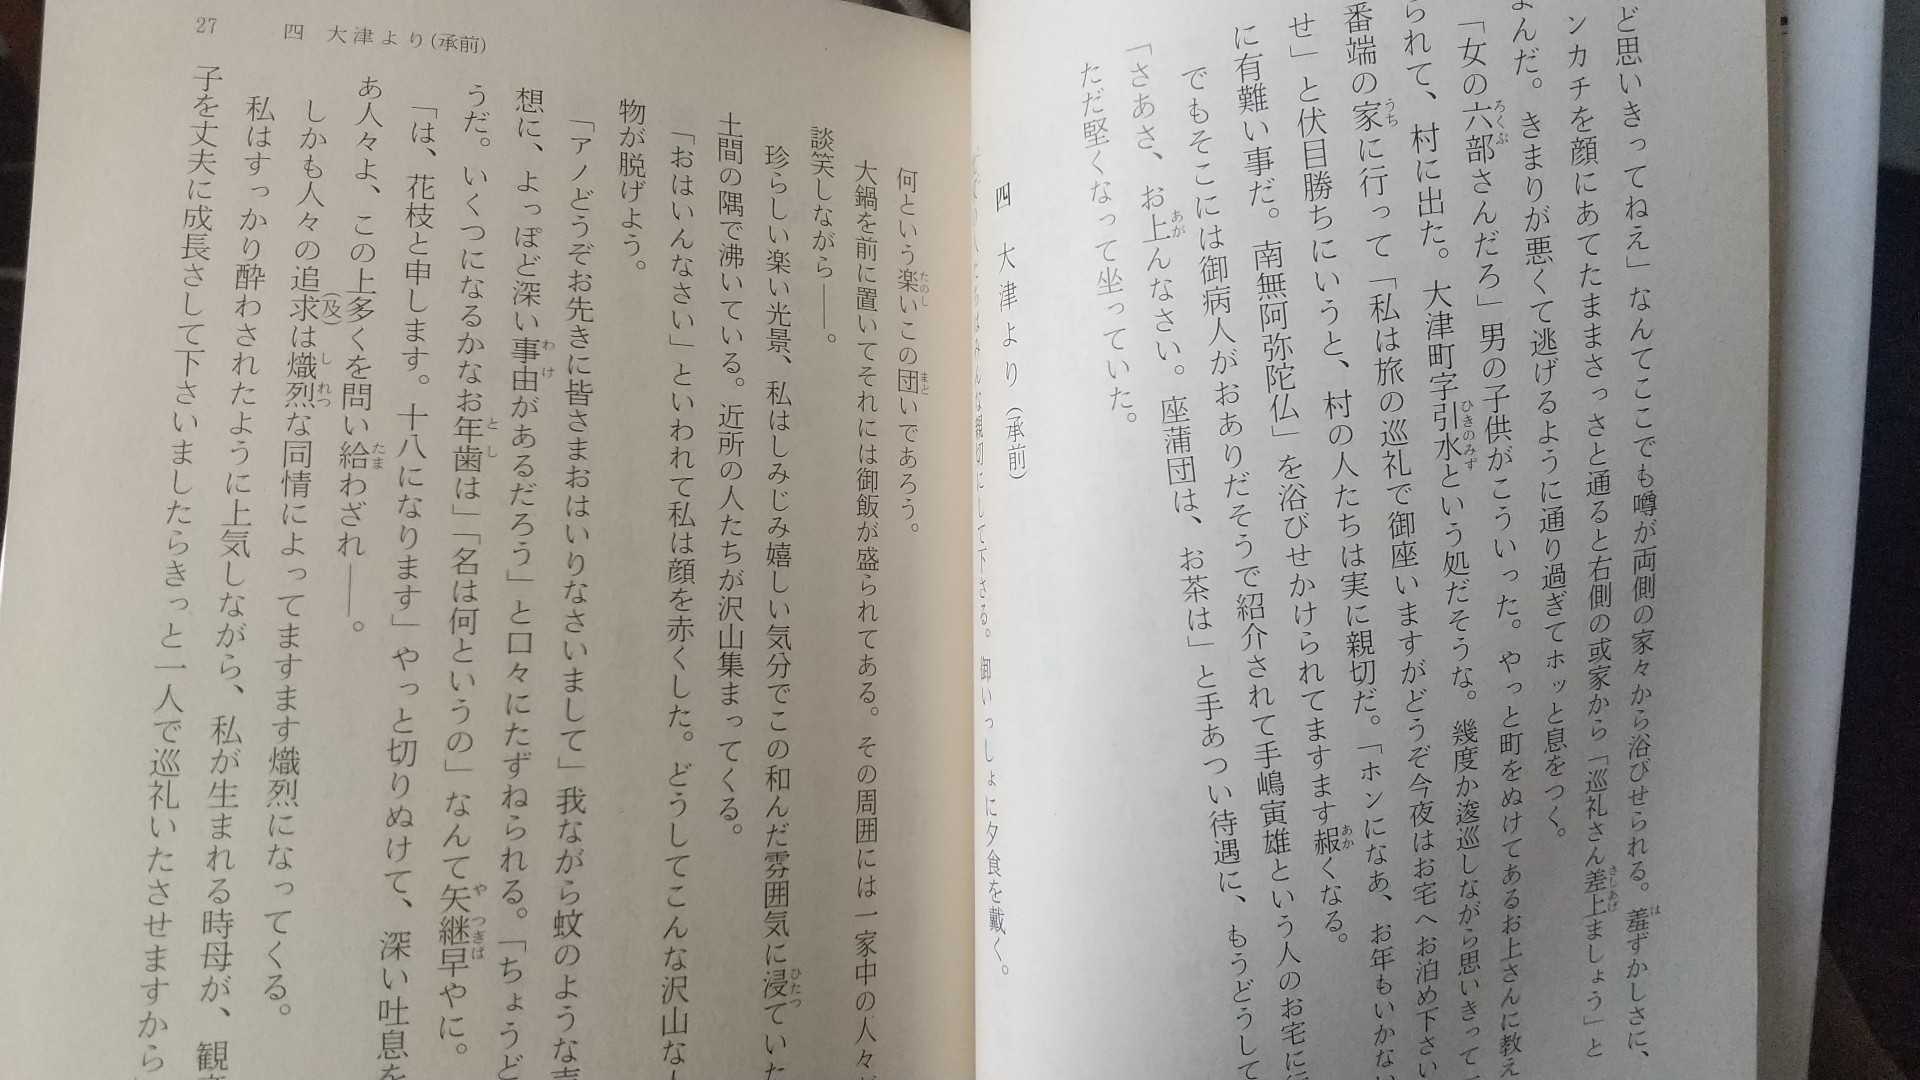 ど思いきってねえ」なんてここでも噂が両側の家々から浴びせられる。羞ずかしさに、
ンカチを顔にあてたままさっさと通ると右側の或家から「巡礼さん差上ましょう」と
よんだ。きまりが悪くて逃げるように通り過ぎてホッと息をつく。
「女の六部さんだろ」男の子供がこういった。やっと町をぬけてあるお上さんに教え
られて、村に出た。大津町字引水という処だそうな。幾度か逡巡しながら思いきって
番端の家に行って「私は旅の巡礼で御座いますがどうぞ今夜はお宅へお泊め下さい
せ」と伏目勝ちにいうと、村の人たちは実に親切だ。「ホンになあ、お年もいかない
に有難い事だ。南無阿弥陀仏」を浴びせかけられてますます赧くなる。
でもそこには御病人がおありだそうで紹介されて手嶋寅雄という人のお宅に行
「さあさ、お上んなさい。座蒲団は、お茶は」と手あつい待遇に、もうどうして
ただ堅くなって坐っていた。
四 大津より(承前)
みんな親切にして下さる。御いっしょに夕食を戴く。
27 四 大津より(承前)
何という楽いこの団いであろう。
大鍋を前に置いてそれには御飯が盛られてある。その周囲には一家中の人々が
談笑しながら――。
珍らしい楽い光景、私はしみじみ嬉しい気分でこの和んだ雰囲気に浸ていた
土間の隅で沸いている。近所の人たちが沢山集まってくる。
「おはいんなさい」といわれて私は顔を赤くした。どうしてこんな沢山な
物が脱げよう。
「アノどうぞお先きに皆さまおはいりなさいまして」我ながら蚊のような声
想に、よっぽど深い事由があるだろう」と口々にたずねられる。「ちょうど
うだ。いくつになるかなお年歯は」「名は何というの」なんて矢継早やに。
「は、花枝と申します。十八になります」やっと切りぬけて、深い吐息を
あ人々よ、この上多くを問い給わざれ――。
しかも人々の追求(及)は熾烈な同情によってますます熾烈になってくる。
私はすっかり酔わされたように上気しながら、私が生まれる時母が、観
子を丈夫に成長さして下さいましたらきっと一人で巡礼いたさせますから